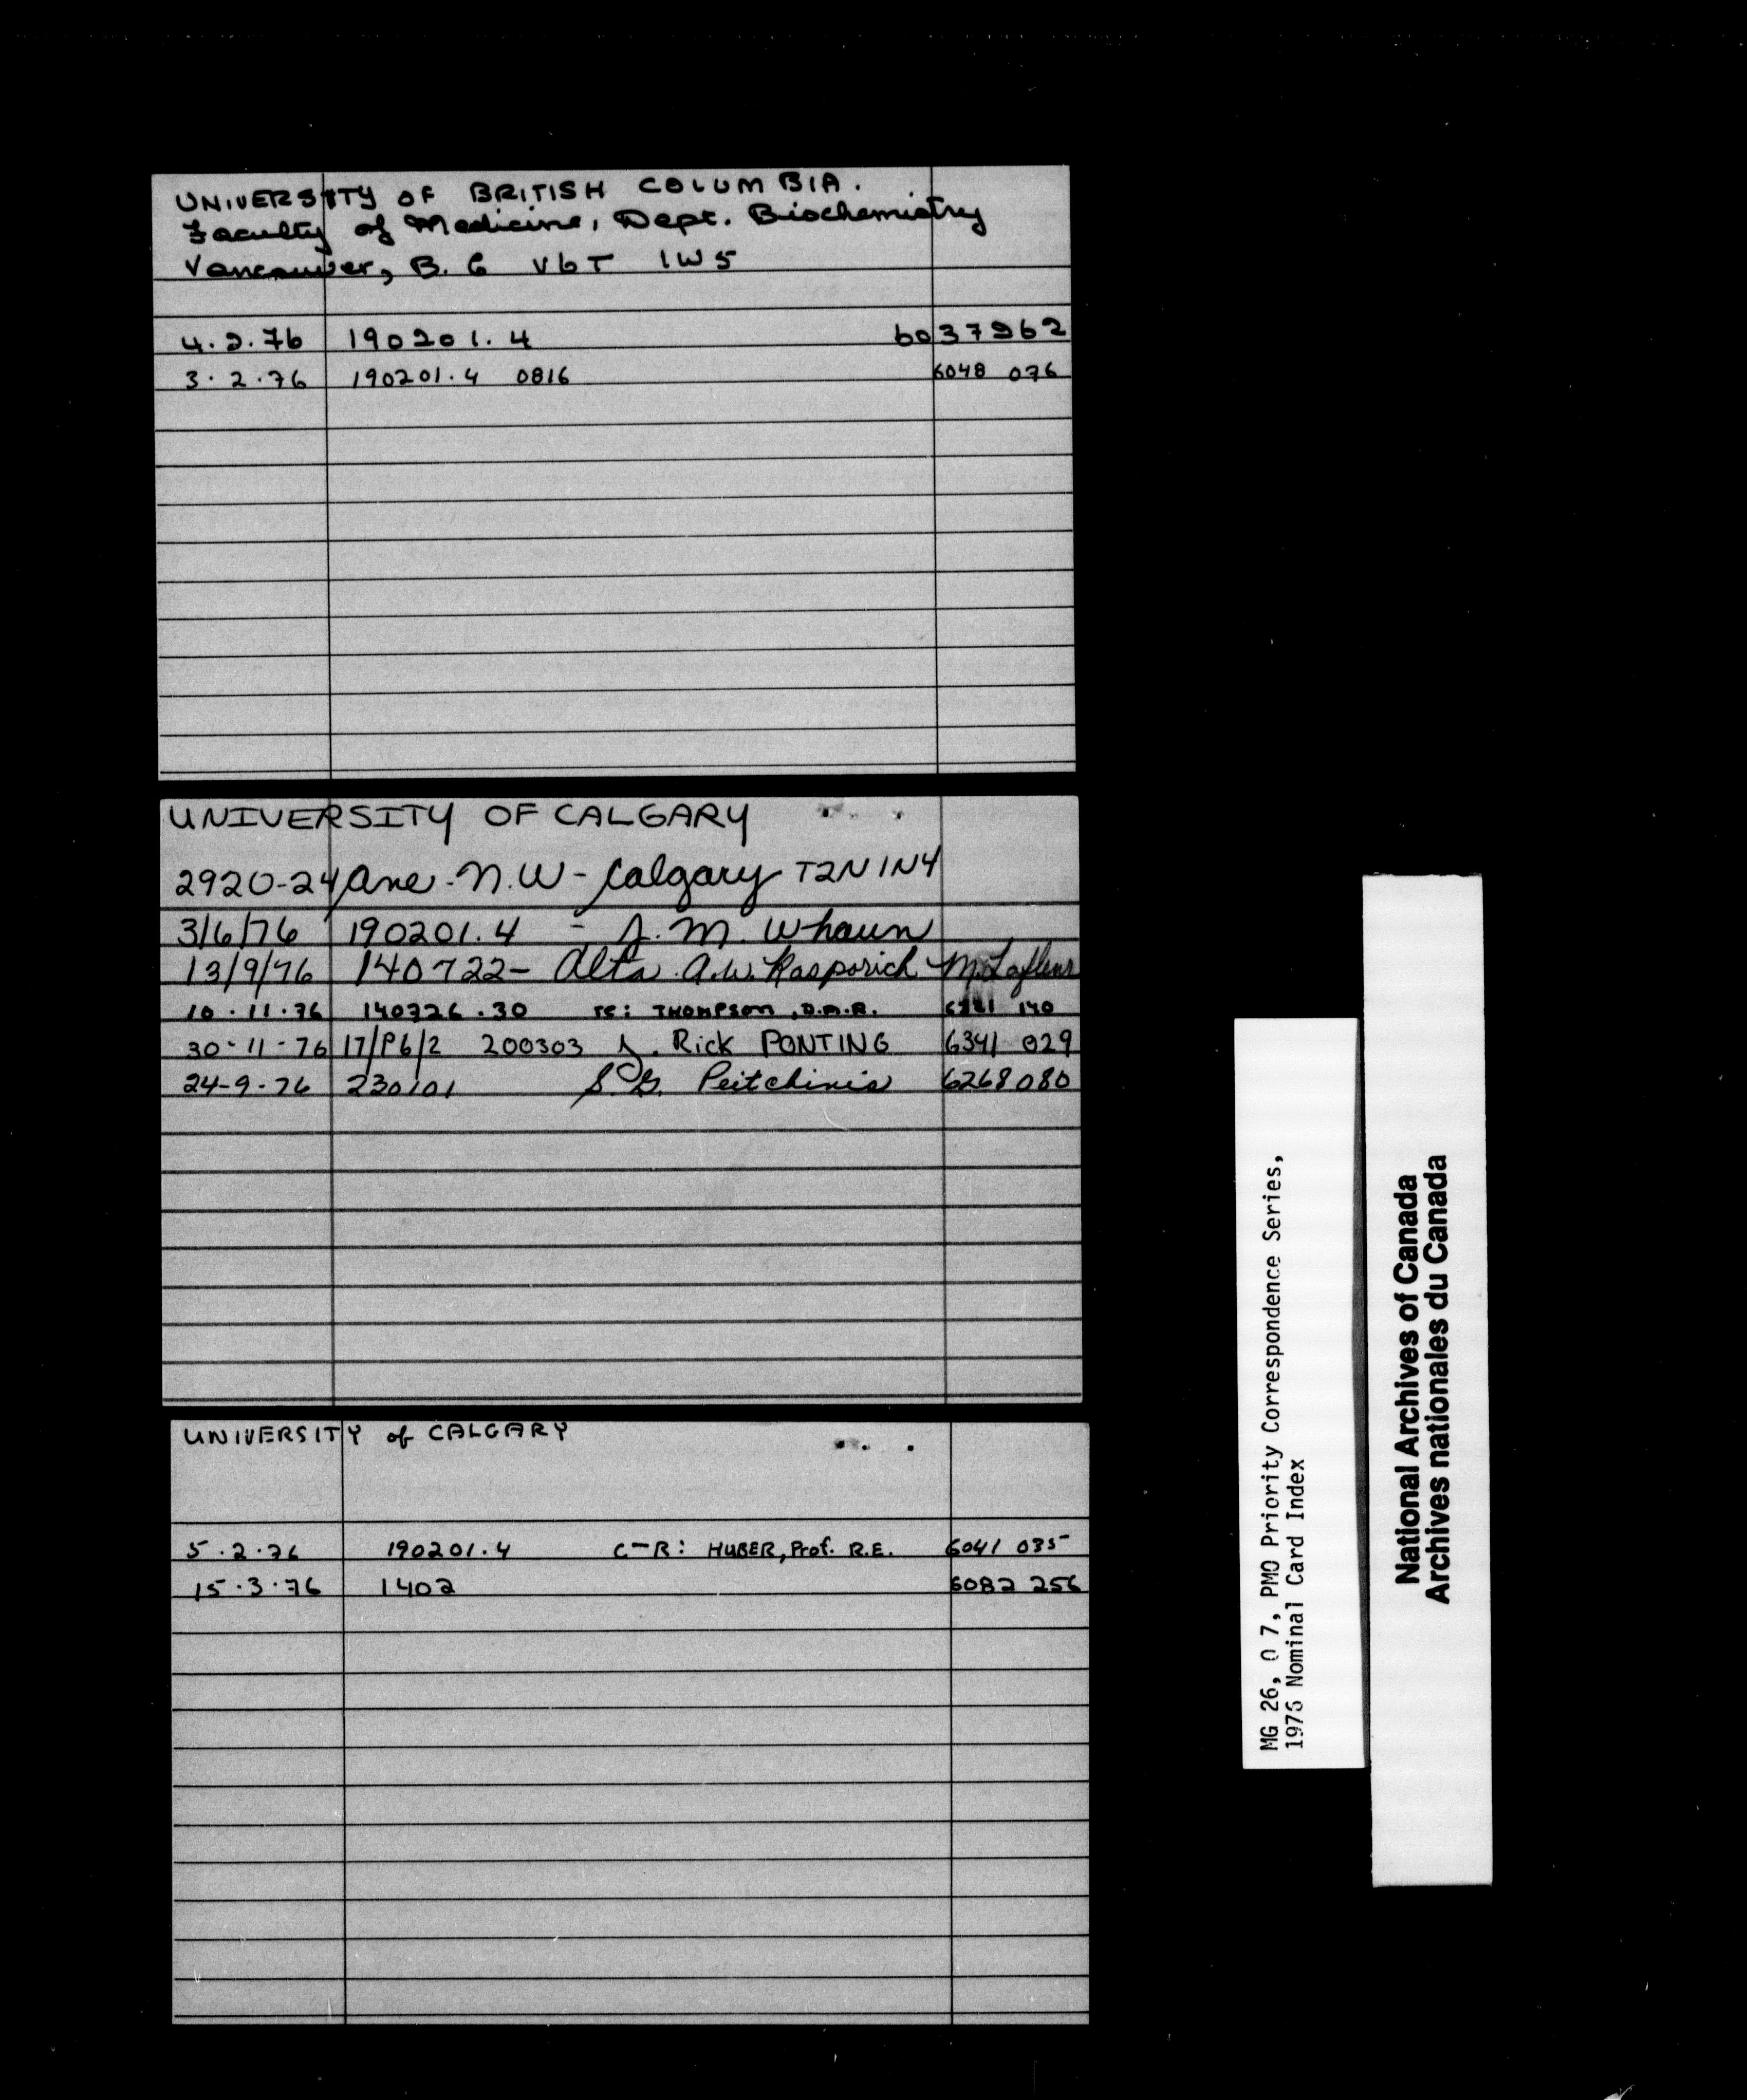 UNIVERSITY OF BRITISH COLUMBIA.
Faculty of Medicine, Dept. Biochemistry
Vancouver, B.C V6T 1W5
4.2.76 190201.4 6037962
3.2.76 190201.4 0816 6048 076
UNIVERSITY OF CALGARY
2920-24 Ave. N.W - Calgary T2N 1N4
3/6/76 190201.4 - J. M. Whaun
13/9/76 140722 - Alta. A.W. Rasporich M. Lafleur
10.11.76 140726.30 re: THOMPSON, D.A.R. 140
30-11-76 17/P6/2 200303 J. Rick PONTING 6341 029
24-9-76 230101 S.G. Peitchinis 6268080
UNIVERSITY of CALGARY
5.2.76 190201.4 C-R: HUBER, Prof. R.E. 6041 035
15.3.76 1402 6082 256
MG 26, O 7, PMO Priority Correspondence Series,
1976 Nominal Card Index
National Archives of Canada
Archives nationales du Canada